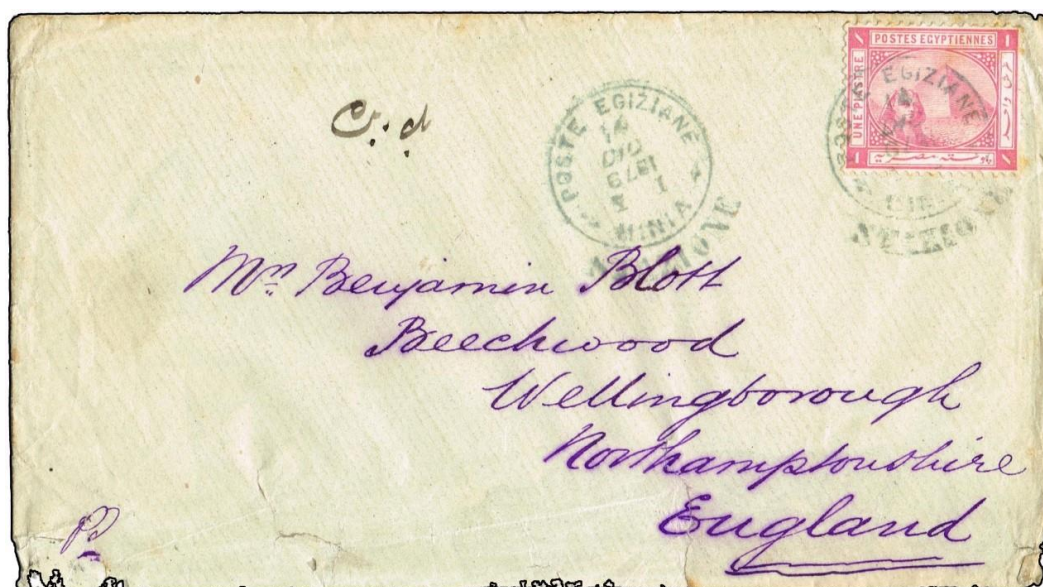 POSTES EGYPTIENNES
UNE PIASTRE
POSTE EGIZIANE
POSTE EGIZIANE
1879
MINIA
STAZIONE
STAZIONE
Mrs Benjamin Blott
Beechwood
Wellingborough
Northamptonshire
England